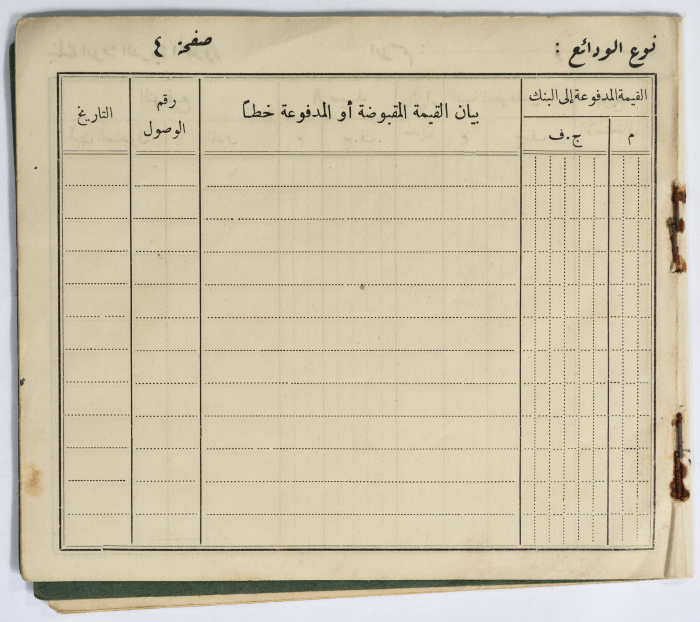 نوع الودائع :
صفحة ٤
القيمة المدفوعة إلى البنك
م
ج.ف
بيان القيمة المقبوضة أو المدفوعة خطاً
رقم
الوصول
التاريخ